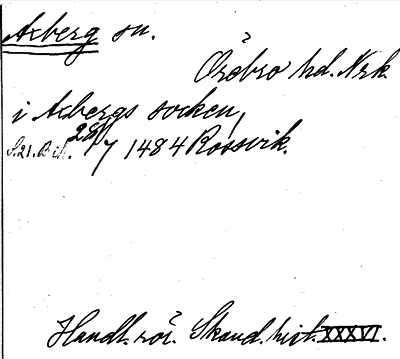 Axberg sn.
Örebro hd. Nrk.
i Axbergs socken,
S.21. Bih. 28/7 1484 Rossvik.
Handl. rör. Skand. hist. XXXVI.